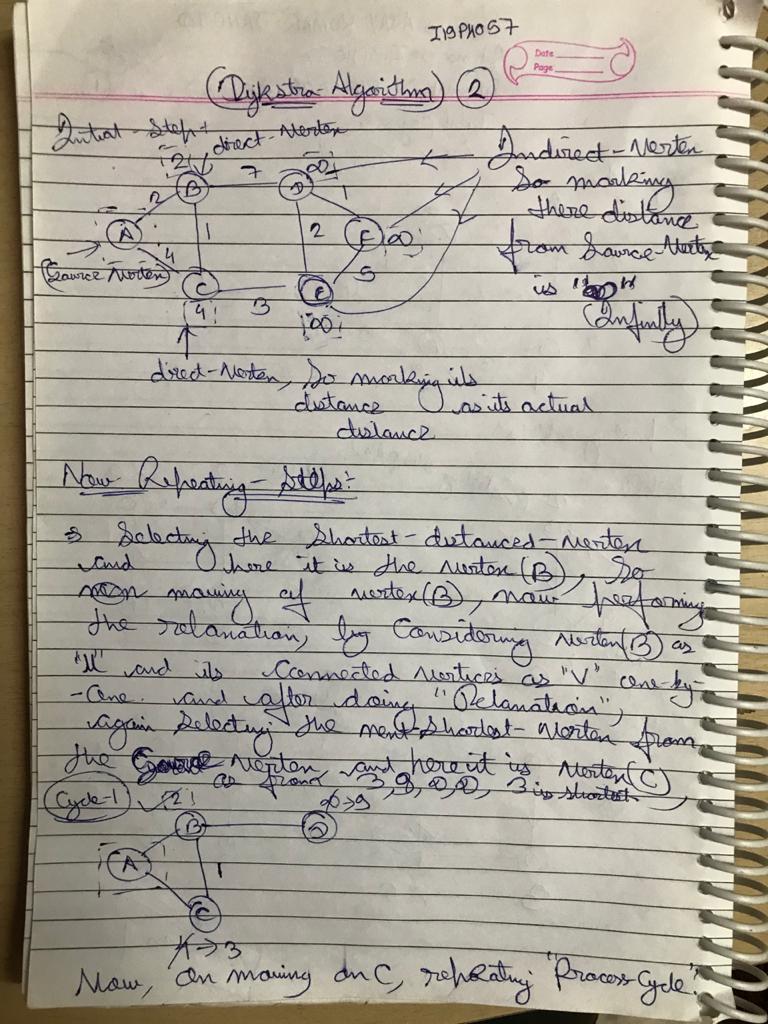 I19PH057
Date
Page
(Dijkstra Algorithm) 2
Initial-Step:
direct-Vertex
2
B
7
D
∞
Indirect-Vertex
So marking
there distance
from Source-Vertex
is "∞"
(Infinity)
2
A
1
1
2
E
∞
Source Vertex
4
C
4
3
F
5
∞
direct-Vertex, So marking its
distance as its actual
distance
Now Repeating-Steps:
⇒ Selecting the Shortest-distanced-vertex
and here it is the vertex (B), So
moving of vertex (B), now performing
the relaxation, by Considering Vertex (B) as
"U" and its Connected vertices as "V" one-by-
-one. and after doing "Relaxation",
again Selecting the next-Shortest-Vertex from
the Vertex and here it is Vertex (C)
as from 3, 9, ∞, ∞, 3 is shortest,
Cycle-1
2
B
D
∞→9
A
1
C
4→3
Now, On moving on C, repeating "Process-Cycle".